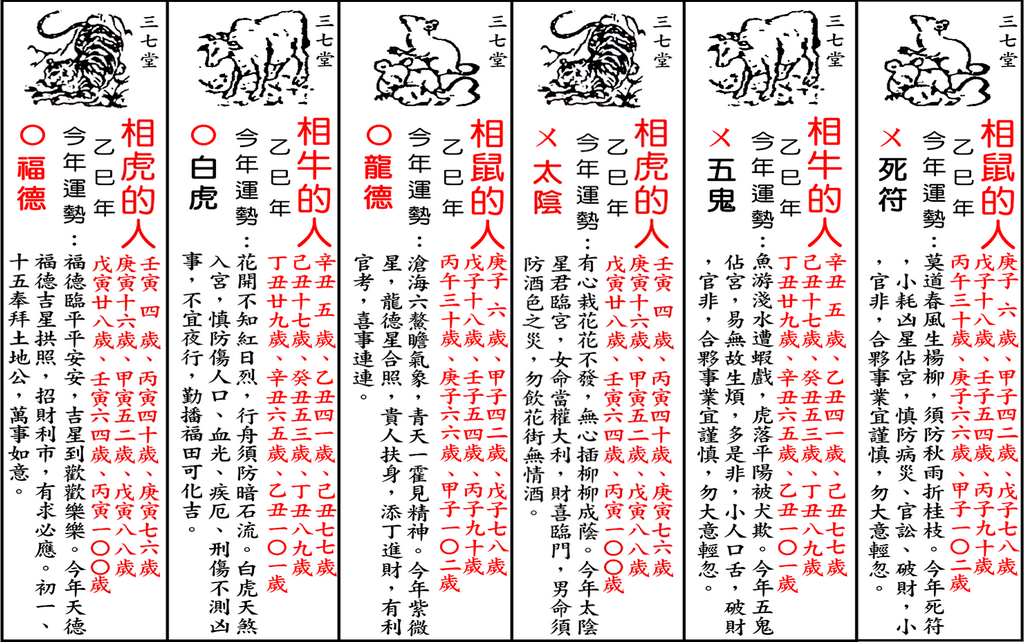 三七堂
相鼠的人
庚子 六 歲、甲子四二歲、戊子七八歲
戊子十八歲、壬子五四歲、丙子九十歲
丙午三十歲、庚子六六歲、甲子一〇二歲
乙巳年
今年運勢：莫道春風生楊柳，須防秋雨折桂枝。今年死符
，小耗凶星佔宮，慎防病災、官訟、破財，小
，官非，合夥事業宜謹慎，勿大意輕忽。
✕死符
三七堂
相牛的人
辛丑 五 歲、乙丑四一歲、己丑七七歲
己丑十七歲、癸丑五三歲、丁丑八九歲
丁丑廿九歲、辛丑六五歲、乙丑一〇一歲
乙巳年
今年運勢：魚游淺水遭蝦戲，虎落平陽被犬欺。今年五鬼
佔宮，易無故生煩，多是非，小人口舌，破財
，官非，合夥事業宜謹慎，勿大意輕忽。
✕五鬼
三七堂
相虎的人
壬寅 四 歲、丙寅四十歲、庚寅七六歲
庚寅十六歲、甲寅五二歲、戊寅八八歲
戊寅廿八歲、壬寅六四歲、丙寅一〇〇歲
乙巳年
今年運勢：有心栽花花不發，無心插柳柳成蔭。今年太陰
星君臨宮，女命當權大利，財喜臨門，男命須
防酒色之災，勿飲花街無情酒。
✕太陰
三七堂
相鼠的人
庚子 六 歲、甲子四二歲、戊子七八歲
戊子十八歲、壬子五四歲、丙子九十歲
丙午三十歲、庚子六六歲、甲子一〇二歲
乙巳年
今年運勢：滄海六鰲瞻氣象，青天一霍見精神。今年紫微
星，龍德星合照，貴人扶身，添丁進財，有利
官考，喜事連連。
〇龍德
三七堂
相牛的人
辛丑 五 歲、乙丑四一歲、己丑七七歲
己丑十七歲、癸丑五三歲、丁丑八九歲
丁丑廿九歲、辛丑六五歲、乙丑一〇一歲
乙巳年
今年運勢：花開不知紅日烈，行舟須防暗石流。白虎天煞
入宮，慎防傷人口、血光、疾厄、刑傷不測凶
事，不宜夜行，勤播福田可化吉。
〇白虎
三七堂
相虎的人
壬寅 四 歲、丙寅四十歲、庚寅七六歲
庚寅十六歲、甲寅五二歲、戊寅八八歲
戊寅廿八歲、壬寅六四歲、丙寅一〇〇歲
乙巳年
今年運勢：福德臨平平安安，吉星到歡歡樂樂。今年天德
福德吉星拱照，招財利市，有求必應。初一、
十五奉拜土地公，萬事如意。
〇福德